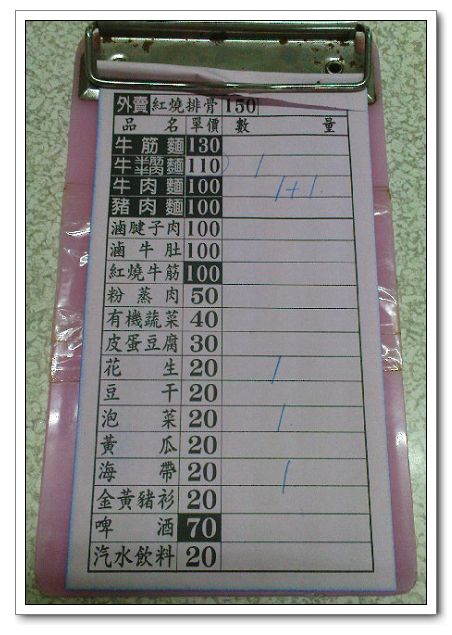 外賣 紅燒排骨 150
品名 單價 數量
牛筋麵 130
牛半筋半肉麵 110 1
牛肉麵 100 1+1
豬肉麵 100
滷腱子肉 100
滷牛肚 100
紅燒牛筋 100
粉蒸肉 50
有機蔬菜 40
皮蛋豆腐 30
花生 20 1
豆干 20
泡菜 20 1
黃瓜 20
海帶 20 1
金黃豬衫 20
啤酒 70
汽水飲料 20